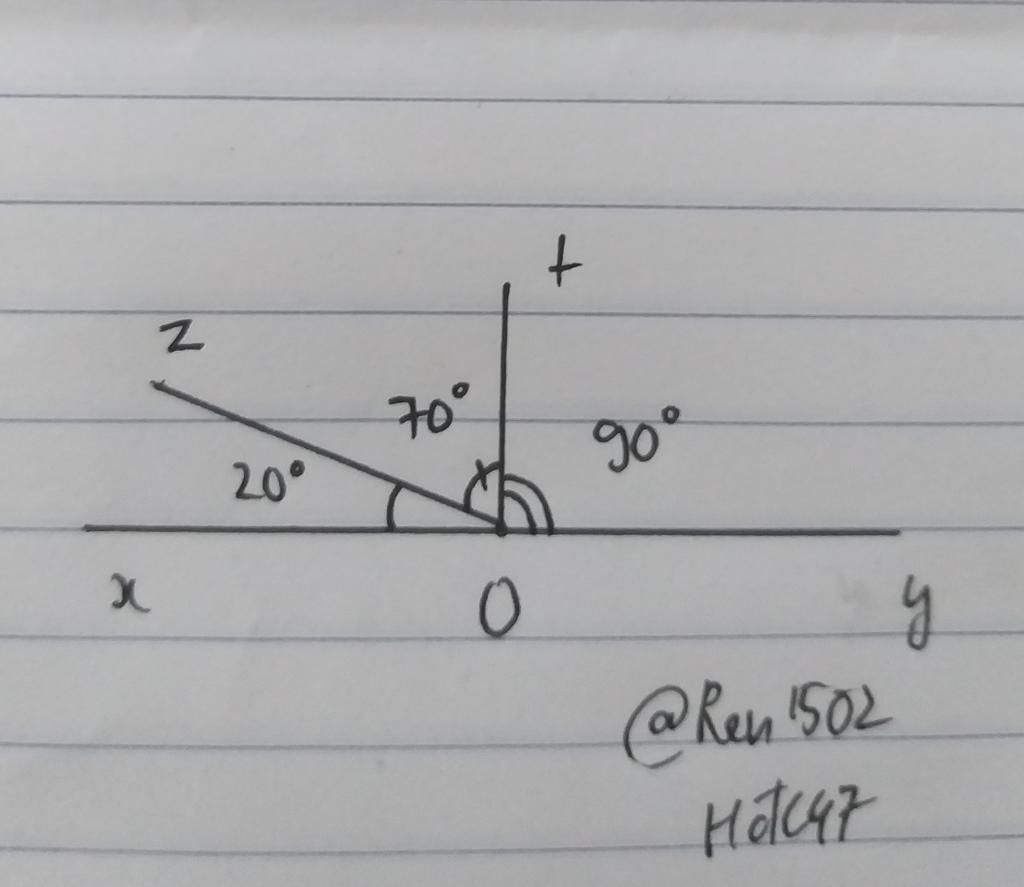 t
z
70°
90°
20°
x
O
y
@Ren1502